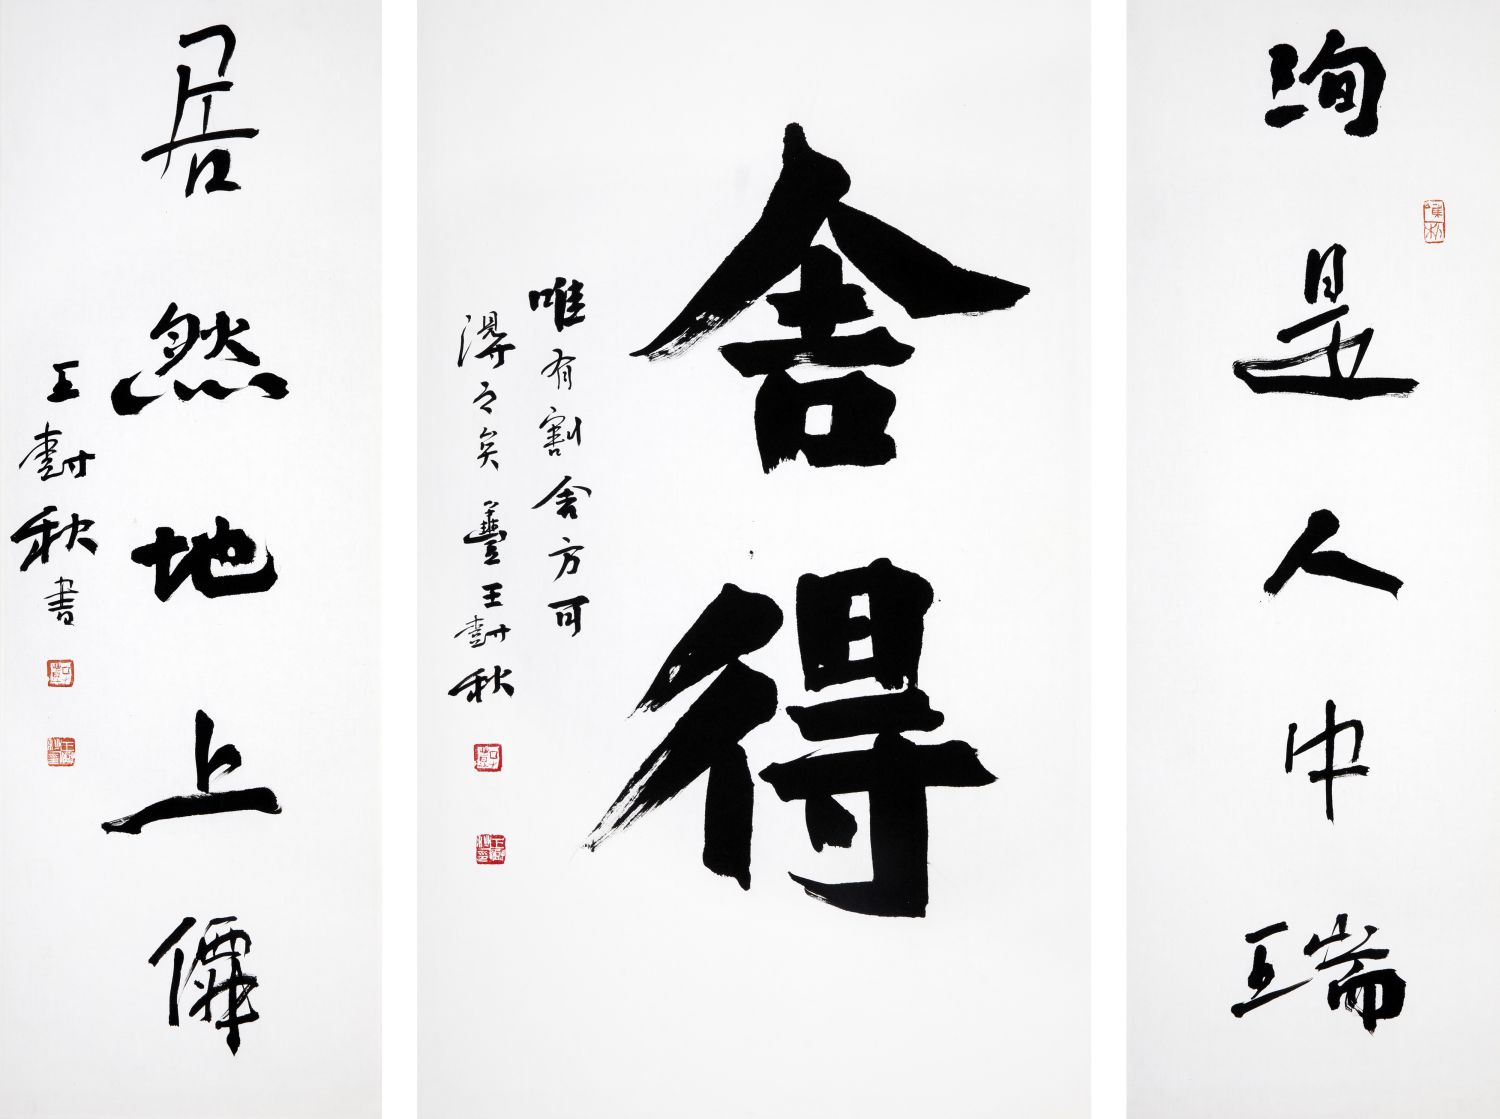 洵是人中瑞
舍得
唯有割舍方可
得之矣 臺 王對秋
居然地上僊
王對秋書